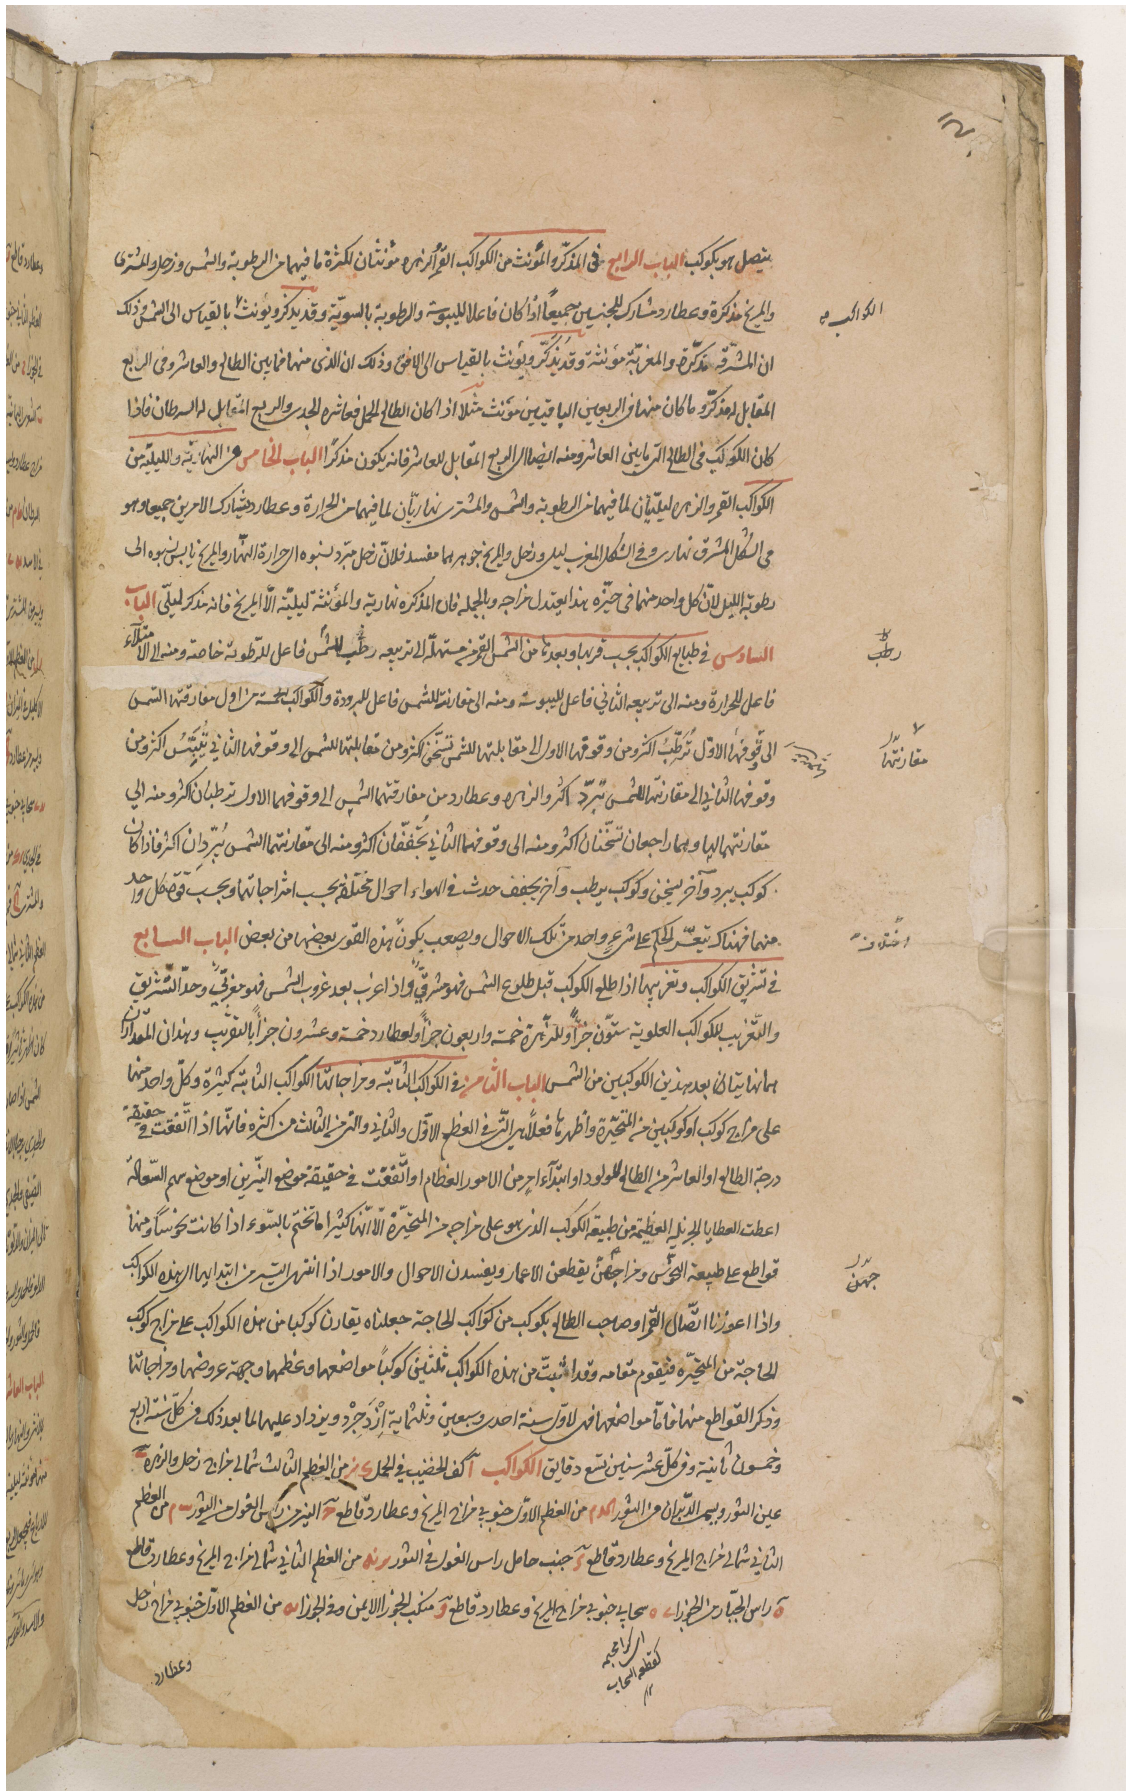 ١٢
يتصل هو بكوكب الباب الرابع في المذكر والمؤنث من الكواكب القمر والزهره مؤنثان لكثرة ما فيهما من الرطوبة والشمس وزحل والمشترى
والمريخ مذكرة وعطارد مشارك للجنسين جميعًا اذ كان فاعلا لليبوسة والرطوبة بالسويّة وقد يذكر ويؤنث بالقياس الى الشمس وذلك
الكواكب
ان المشرّقة مذكّرة والمغربّة مؤنثة وقد يُذكّر ويؤنث بالقياس الى الافق وذلك ان الذى منها فيما بين الطالع والعاشر وفى الربع
المقابل له مذكّر وما كان منها فى الربعين الباقيين مؤنث مثلا اذا كان الطالع الحمل فعاشره الجدى والربع المقابل له السرطان فاذا
كان الكوكب فى الطالع الى ما يلى العاشر ومنه ايضا الى الربع المقابل للعاشر فانه يكون مذكرًا الباب الخامس فى النهاريّة والليليّة من
الكواكب القمر والزهره ليليّان لما فيهما من الرطوبة والشمس والمشترى نهاريّان لما فيهما من الحرارة وعطارد يشارك الامرين جميعا وهو
فى الشكل المشرق نهارى وفى الشكل المغرب ليلى وزحل والمريخ جوهرهما مفسد فلان زحل مبرد نسبوه الى حرارة النهار والمريخ يابس نسبوه الى
رطوبة الليل لان كل واحد منهما فى حيّزه هذا يعتدل مزاجه وبالجمله فان المذكره نهارية والمؤنثة ليليّة الّا المريخ فانه مذكر ليلىّ الباب
السادس فى طبايع الكواكب بحسب قربها وبعدها من الشمس القمر من مستهلّه الى تربيعه رطب للشمس فاعل للرطوبة خاصة ومنه الى الامتلاء
رطب
فاعل للحرارة ومنه الى تربيعه الثاني فاعل لليبوسة ومنه الى مقارنته للشمس فاعل للبرودة والكواكب الخمسة من اول مفارقتها الشمس
الى وقوفها الاول تُرطّب اكثر ومن وقوفها الاول الى مقابلتها للشمس تسخّن اكثر ومن مقابلتها للشمس الى وقوفها الثاني تُيبّس اكثر ومن
مقارنتها
وقوفها الثاني الى مقارنتها للشمس تبرّد اكثر والزهره وعطارد من مفارقتهما الشمس الى وقوفهما الاول ترطبان اكثر ومنه الي
مقارنتهما اليها وهما راجعان تسخّنان اكثر ومنه الى وقوفهما الثاني تُجفّفان اكثر ومنه الى مقارنتهما الشمس يُبرّدان اكثر فاذا كان
كوكب يبرد وآخر يسخن وكوكب يرطب وآخر يجفف حدث فى الهواء احوال مختلفة بحسب امتزاجاتها وبحسب قوّة كل واحد
منهما فهناك يتعسّر الحكم على شىء واحد من تلك الاحوال ويصعب يكون هذه القوى بعضها من بعض الباب السابع
فى تشريق الكواكب وتغريبها اذا طلع الكوكب قبل طلوع الشمس فهو مشرقىّ واذا غرب بعد غروب الشمس فهو مغربىّ وحدّ التشريق
والتغريب للكواكب العلوية ستّون جزأً وللزهرة خمسة واربعون جزأً ولعطارد خمسة وعشرون جزأً بالتقريب وهذان المقداران
هما نهايتان بعد هذين الكوكبين من الشمس الباب الثامن فى الكواكب الثابتة ومزاجاتها الكواكب الثابتة كثيرة وكلّ واحد منها
على مزاج كوكب او كوكبين من المتحيّرة واظهرها فعلاً هى الّتى فى العظم الاوّل والثاني والتى من الثالث من كثرة فانّها اذا اتّفقت في حقيقة
درجة الطالع او العاشر من الطالع للمولود او ابتدآء امر من الامور العظام او اتّفقت فى حقيقة موضع النيّرين او موضع سهم السّعادة
اعطت العطايا الجزيله العظيمة من طبيعة الكوكب الذى هو على مزاجه من المتحيّرة الّا انّها كثيرا ما تختم بالسّوء اذا كانت نحوسًا ومنها
قواطع على طبيعة النّحوس ومزاجهنّ يقطعن الاعمار ويفسدن الاحوال والامور اذا انتهى التسيير من ابتدايها الى هذه الكواكب
جهنّ
واذا اعوزنا اتّصال القمر او صاحب الطالع بكوكب من كواكب الحاجة جعلناه يقارن كوكبا من هذه الكواكب على مزاج كوكب
الحاجة من المتحيّره فيقوم مقامه وقد اثبتّ من هذه الكواكب ثلثين كوكبًا مواضعها وعظمها وجهة عروضها ومزاجاتها
وذكر القواطع منها فامّا مواضعها فهى لاوّل سنة احدى وسبعين وثلثماية ازدجرد ويزداد عليها لما بعد ذلك فى كلّ سنة اربع
وخمسون ثانية وفى كلّ عشر سنين تسع دقايق الكواكب آ كفّ الخضيب فى الحمل من العظم الثالث شمالى مزاج زحل والزهره
عين الثور ويسمى الدّبران من الثور من العظم الاوّل جنوبي مزاج المريخ وعطارد قاطع النير من راس الغول من الثور من العظم
الثاني شمالى مزاج المريخ وعطارد قاطع جنب حامل راس الغول فى الثور من العظم الثاني شمالى مزاج المريخ وعطارد قاطع
راس الجبّار من الجوزا سحابى جنوبى مزاج المريخ وعطارد قاطع منكب الجوزا الايمن وفى الجوزا من العظم الاوّل جنوبى مزاج زحل
كقطعة السحاب
وعطارد